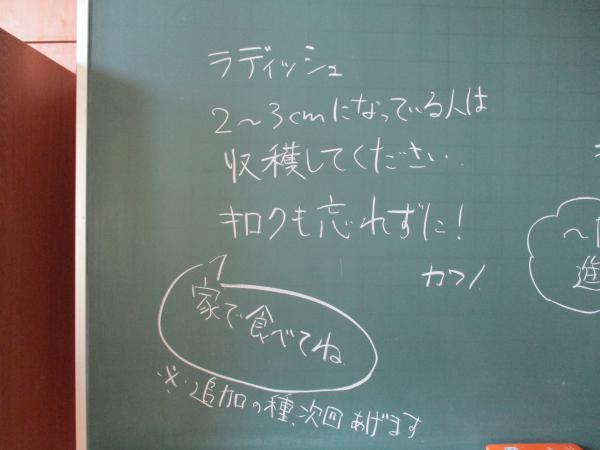 ラディッシュ
2〜3cmになっている人は
収穫してください.
キロクも忘れずに!
カワノ
家で食べてね
※追加の種、次回あげます
〜
進